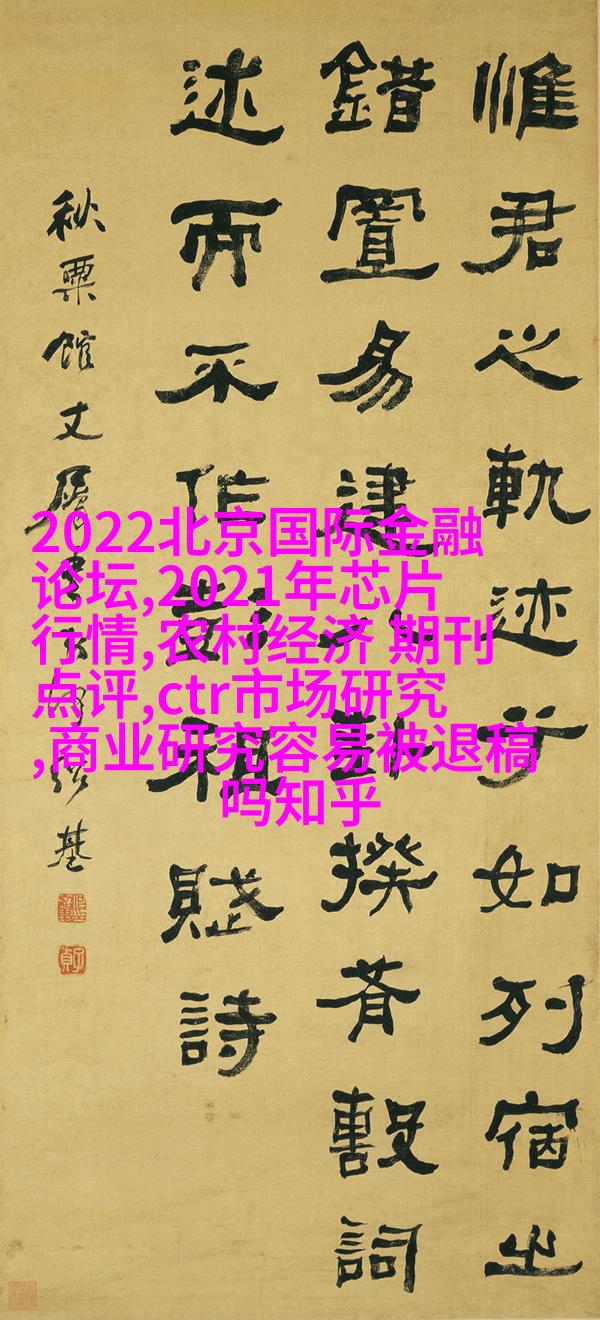 惟君之軌迹兮如列宿之
錯置易建八卦揆肴毄詞
述而不作彭祖賦詩
秋粟館丈屬書 紹基
2022北京国际金融
论坛,2021年芯片
行情,农村经济 期刊
点评,ctr市场研究
,商业研究容易被退稿
吗知乎